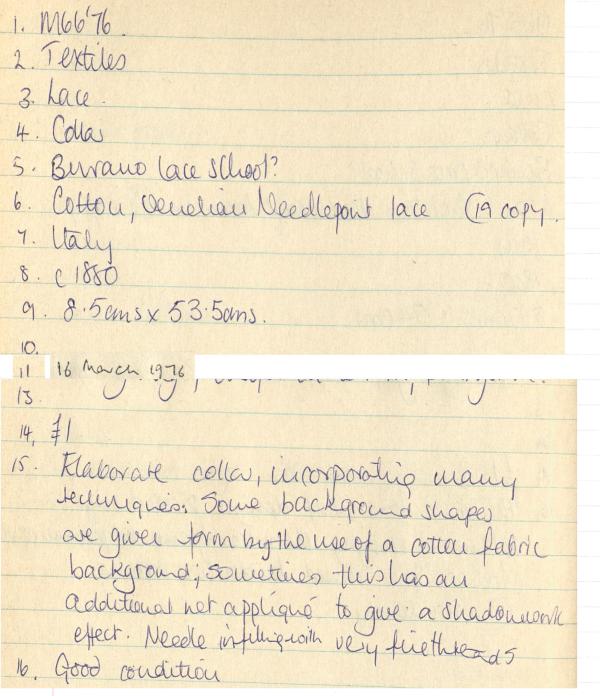 1. M66'76.
2. Textiles
3. Lace.
4. Collar
5. Burrano lace school?
6. Cotton, Venetian Needlepoint lace C19 copy.
7. Italy
8. c 1880
9. 8.5cms x 53.5cms.
10.
11 16 March 1976
13.
14. £1
15. Elaborate collar, incorporating many
techniques. Some background shapes
are given form by the use of a cotton fabric
background; sometimes this has an
additional net appliqué to give a shadow work
effect. Needle infilling with very fine threads
16. Good condition